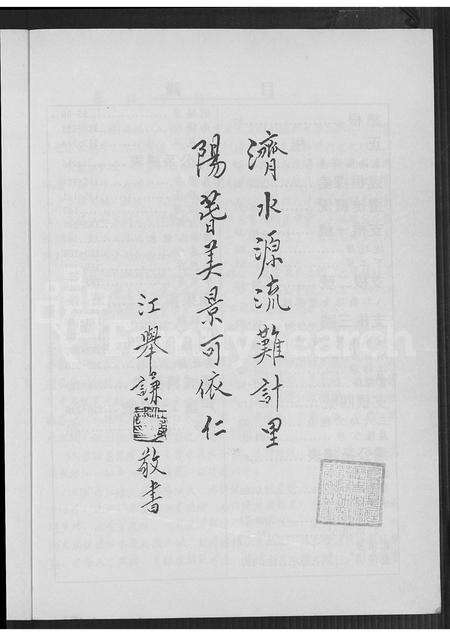 濟水源流難計里
陽春美景可依仁
江舉謙 敬書